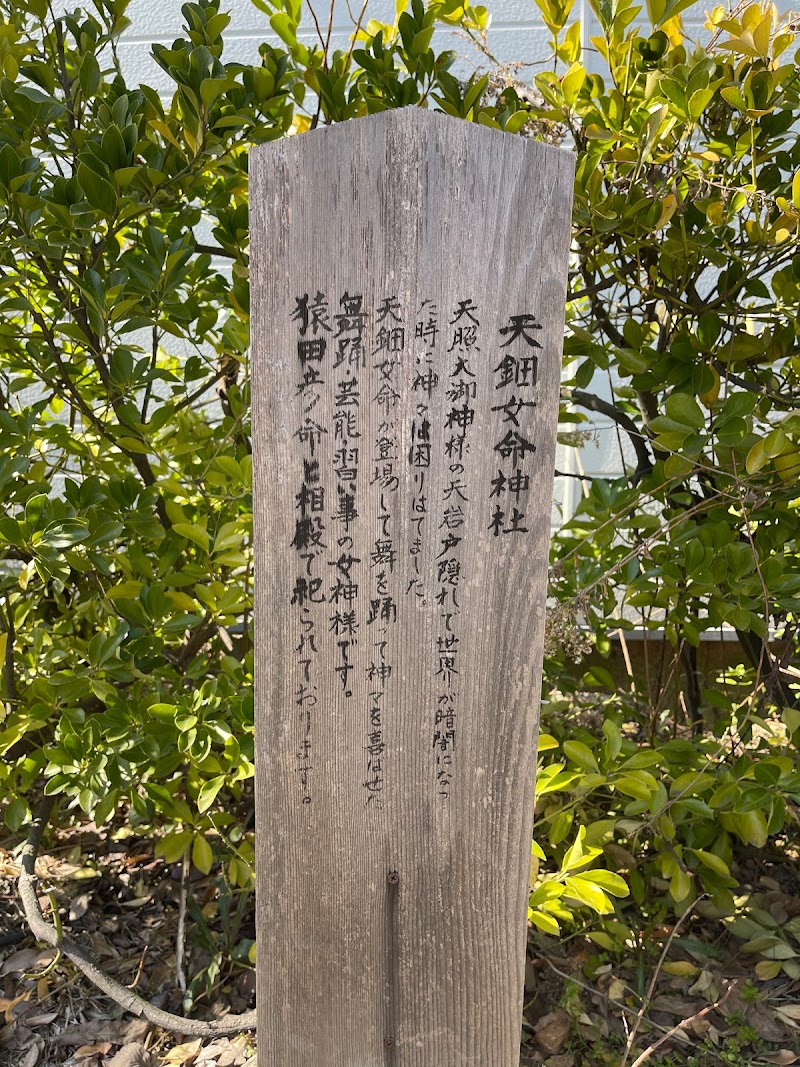 天鈿女命神社
天照大御神様の天岩戸隠れで世界が暗闇になっ
た時に神々は困りはてました。
天鈿女命が登場して舞を踊って神々を喜ばせた
舞踊・芸能・習い事の女神様です。
猿田彦命と相殿で祀られております。